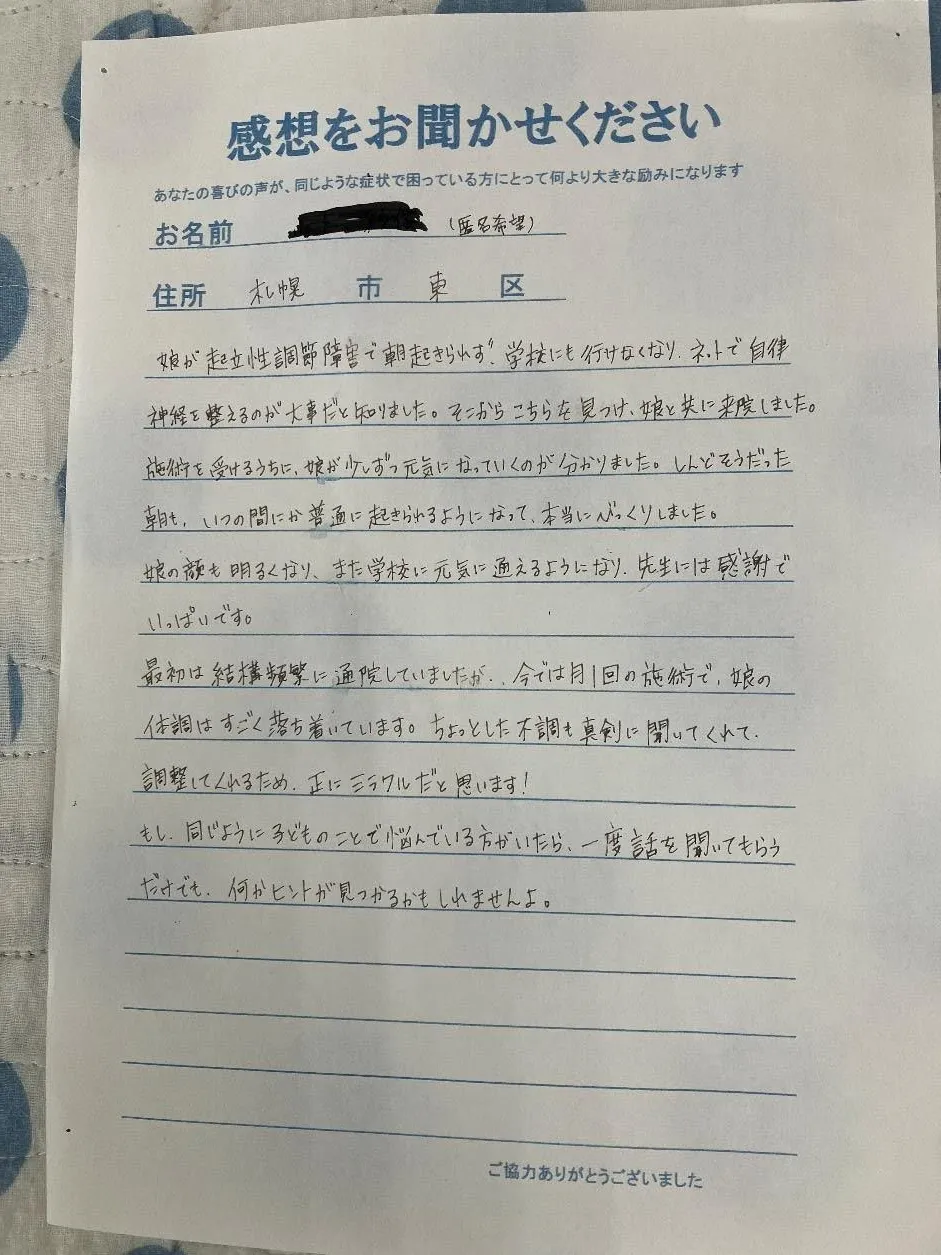 感想をお聞かせください
あなたの喜びの声が、同じような症状で困っている方にとって何より大きな励みになります
お名前 (匿名希望)
住所 札幌 市 東 区
娘が起立性調節障害で朝起きられず、学校にも行けなくなり、ネットで自律
神経を整えるのが大事だと知りました。そこからこちらを見つけ、娘と共に来院しました。
施術を受けるうちに、娘が少しずつ元気になっていくのが分かりました。しんどそうだった
朝も、いつの間にか普通に起きられるようになって、本当にびっくりしました。
娘の顔も明るくなり、また学校に元気に通えるようになり、先生には感謝で
いっぱいです。
最初は結構頻繁に通院していましたが、今では月1回の施術で、娘の
体調はすごく落ち着いています。ちょっとした不調も真剣に聞いてくれて、
調整してくれるため、正にミラクルだと思います!
もし、同じように子どものことで悩んでいる方がいたら、一度話を聞いてもらう
だけでも、何かヒントが見つかるかもしれませんよ。
ご協力ありがとうございました